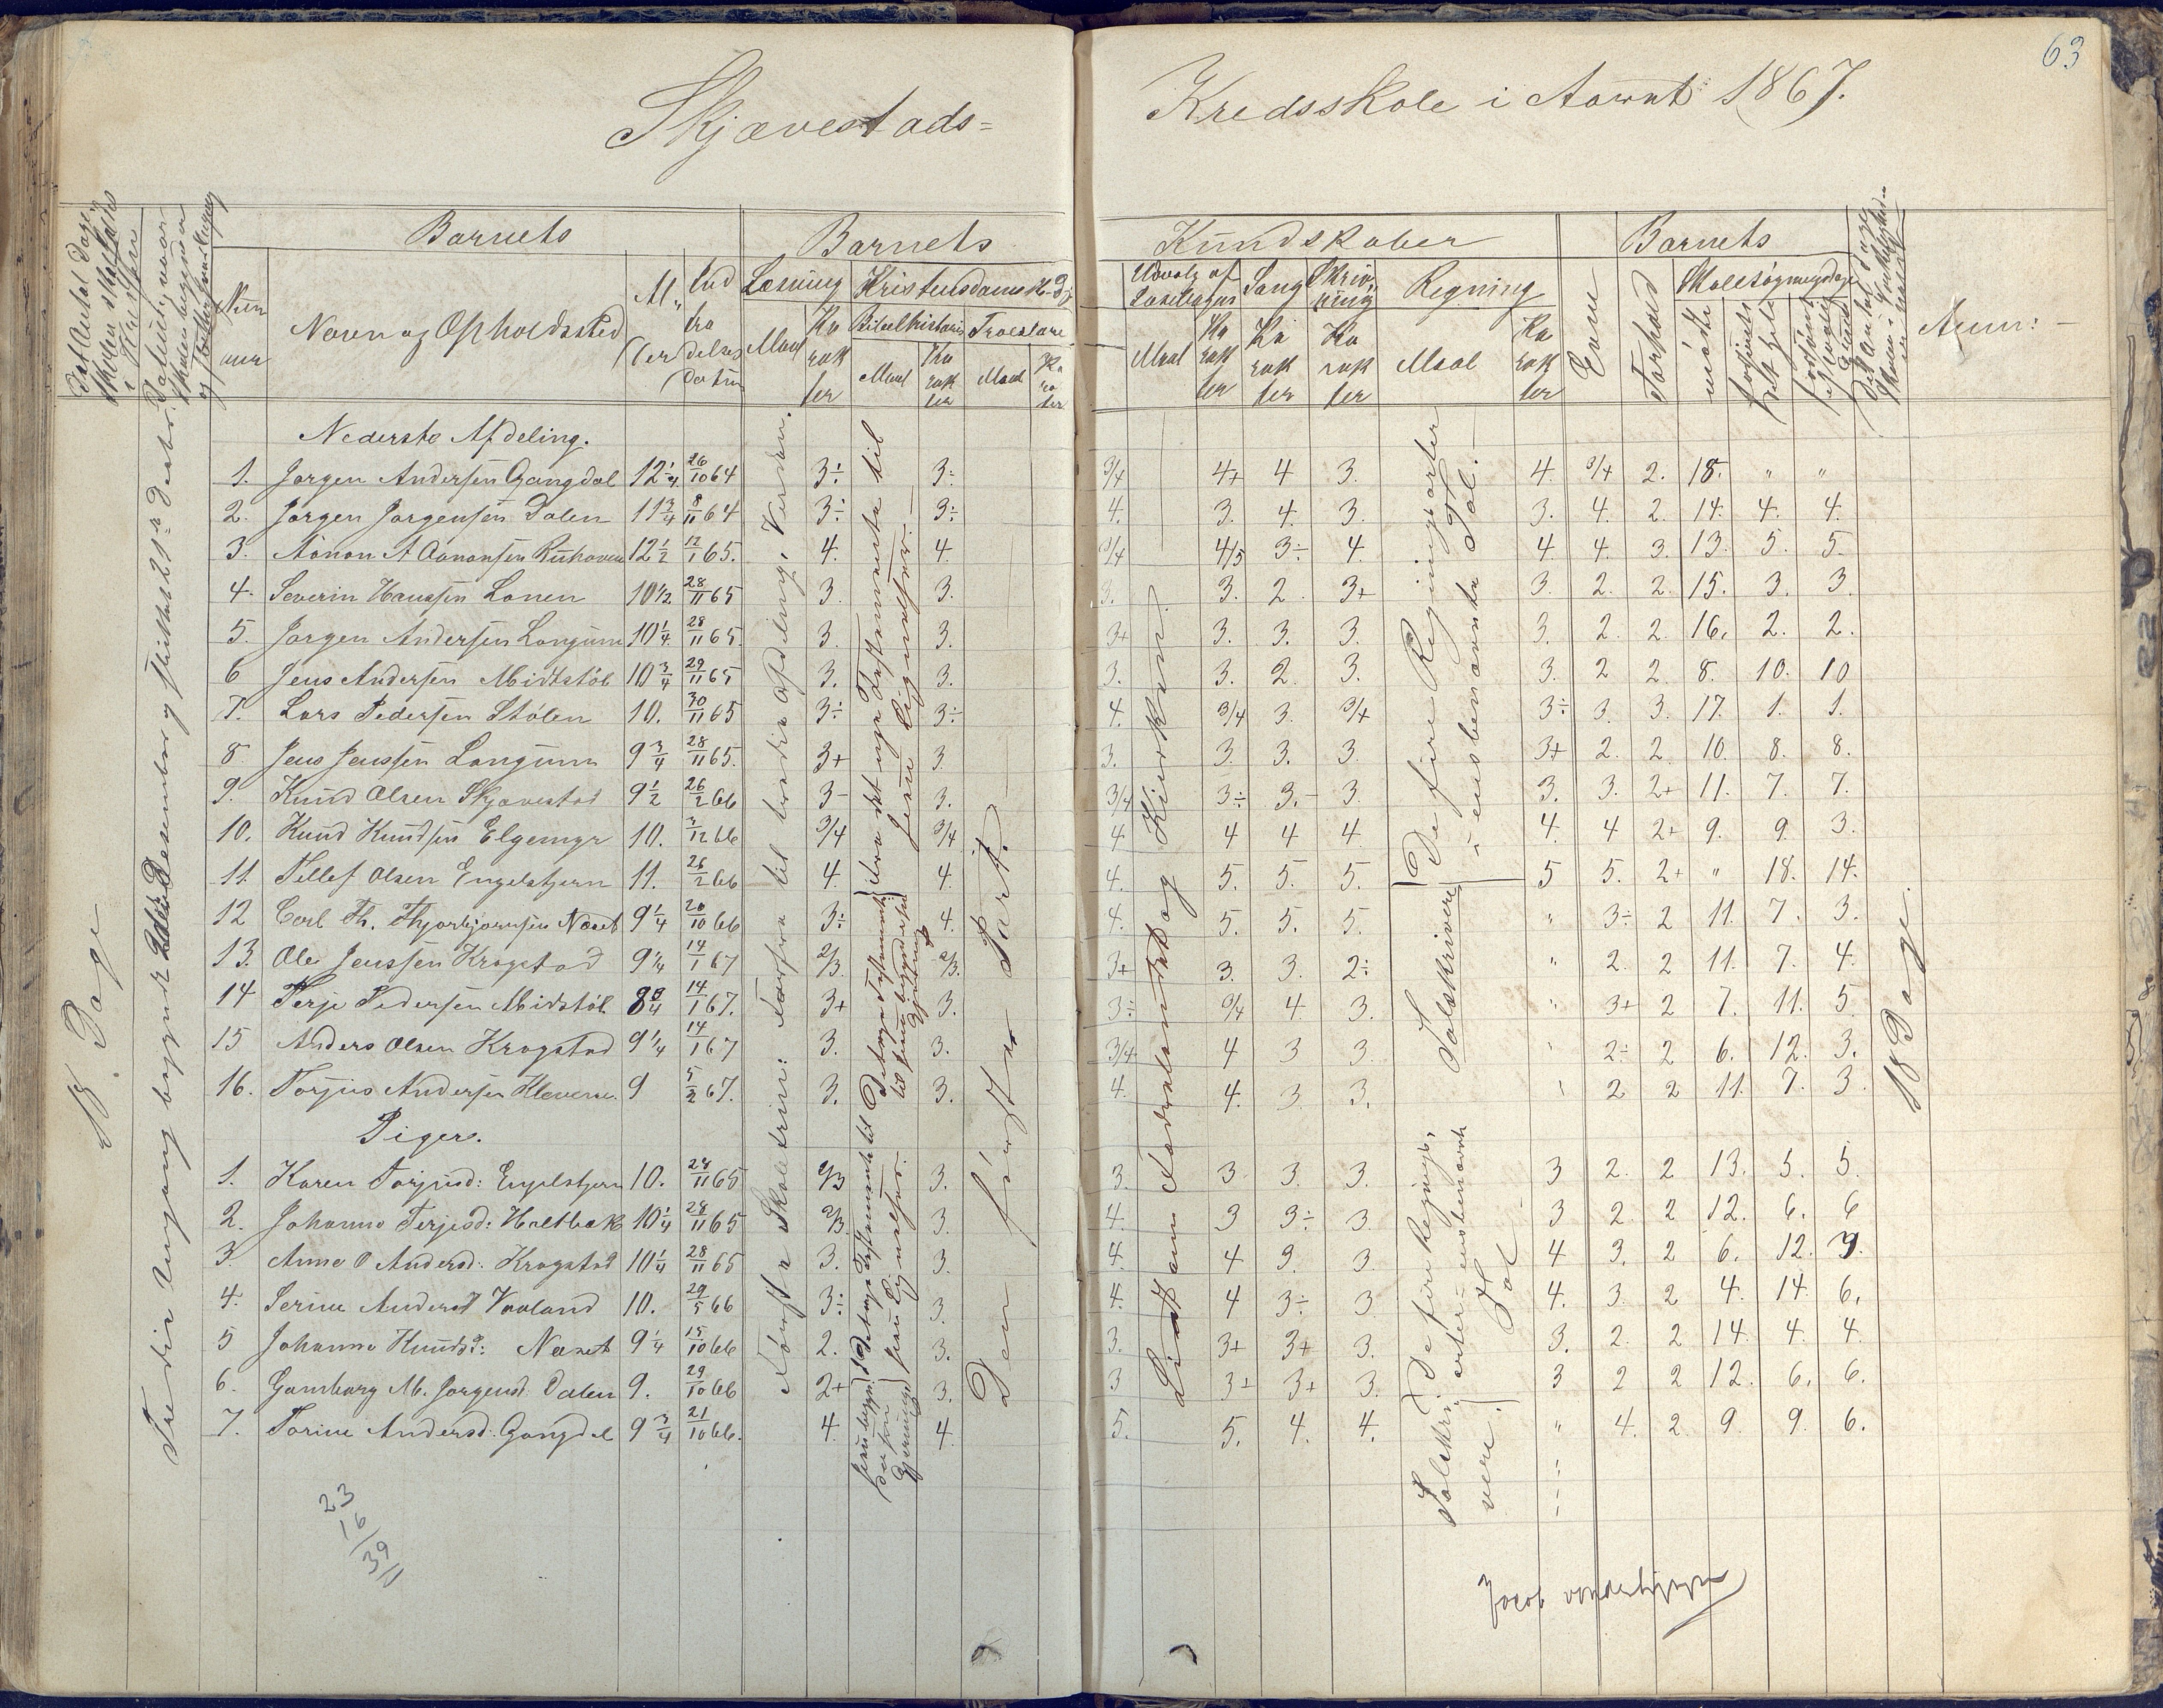 63
Skjævestads= Kredsskole i Aaret 1867.
Barnets Barnets Kundskaber Barnets
Læsning Kristendomsk. Udvalg af Læsebogen Sang Skrivning Regning Evne Forhold Skolesøgningsdage
Navn og Opholdssted Alder Indtrædelsesdatum Maal Karakter Bibelhistorie Troeslære Anm:
Maal Karakter Maal Karakter Maal Karakter Karakter Karakter Maal Karakter mødte forsømte det hele
Nederste Afdeling.
1. Jørgen Andersen Gangdal 12 1/4 26/10 64 3÷ 3÷ 3/4 4+ 4 3. 4. 3/4 2. 18. " "
2. Jørgen Jørgensen Dalen 11 3/4 8/11 64 3÷ 3÷ 4. 3. 4. 3. 3. 4. 2. 14. 4. 4.
3. Aanon A Aanonsen 12 1/2 12/1 65. 4. 4. 3/4 4/5 3÷ 4. 4 4. 3. 13. 5. 5.
4. Severin Hanssen Lonen 10 1/2 28/11 65 3. 3. 3. 3. 2. 3+ 3. 2. 2. 15. 3. 3.
5. Jørgen Andersen Longum 10 1/4 28/11 65. 3. 3. 3+ 3. 3. 3. 3. 2. 2. 16. 2. 2.
6 Jens Andersen Midtstøl 10 3/4 29/11 65 3. 3. 3. 3. 2. 3. 3. 2 2. 8. 10. 10
7. Lars Pedersen Stølen 10. 30/11 65 3÷ 3÷ 4. 3/4 3. 3/4 3÷ 3. 3. 17. 1. 1.
8 Jens Jenssen Longum 9 3/4 28/11 65. 3+ 3. 3. 3. 3. 3. 3+ 2. 2. 10. 8. 8.
9. Knud Olsen Skjævestad 9 1/2 26/2 66 3- 3. 3/4 3÷ 3.- 3. 3. 3. 2+ 11. 7. 7.
10. Knud Knudsen Elgemyr 10. 3/12 66 3/4 3/4 4. 4 4 4. 4. 4 2+ 9. 9. 3.
11. Tellef Olsen Engelstjern 11. 26/2 66 4. 4. 4. 5. 5. 5. 5 5. 2+ " 18. 14.
12 Carl Th. Thorbjørnsen Næset 9 1/4 20/10 66 3÷ 4. 4. 5. 5. 5. " 3÷ 2 11. 7. 3.
13. Ole Jenssen Krogstad 9 1/4 14/1 67 2/3. 2/3. 3+ 3. 3. 2÷ " 2. 2 11. 7. 4.
14 Terje Pedersen Midstøl 8 3/4 14/1 67. 3+ 3. 3÷ 3/4 4 3. " 3+ 2 7. 11. 5
15 Anders Olsen Krogstad 9 1/4 14/1 67 3. 3. 3/4 4 3 3. " 2÷ 2 6. 12. 3.
16. Torjus Andersen Kleveren 9 5/2 67. 3. 3. 4. 4. 3. 3. " 2 2 11. 7. 3.
Piger.
1. Karen Torjusd: Engelstjern 10. 28/11 65 2/3 3. 3. 3 3. 3. 3 2. 2 13. 5. 5.
2. Johanne Terjesd: Holtbæk 10 1/4 28/11 65 2/3. 3. 4. 3 3÷ 3. 3 2. 2 12. 6. 6
3. Anne O Andersd: Krogstad 10 1/4 28/11 65 3. 3. 4. 4 3. 3. 4 3. 2 6. 12. 3.
4. Serine Andersd Vaaland 10. 29/5 66 3÷ 3. 4. 4 3÷ 3 4. 3. 2 4. 14. 6.
5 Johanne Knudsd: Næset 9 1/4 15/10 66 2. 3. 3. 3+ 3+ 3. 3. 2. 2 14. 4. 4.
6. Gunborg M. Jørgensd: Dalen 9. 29/10 66 2+ 3. 3 3+ 3+ 3. 3 2 2 12. 6. 6.
7. Torine Andersd: Gangdal 9 3/4 21/10 66. 4. 4. 5. 5. 4. 4. " 4. 2 9. 9. 6.
18 Dage
Tredie Omgang begyndt Desember og sluttet 21de Desbr.
Første Skoletrin: Forfra til tredie Afdeling, Verden.
fra det nye Testamente til Jesu Lignelser.
Det nye Testamente til Jesu Lignelser.
Den første Part.
Lind om Fædrelandet og Kirken.
De fire Regningsarter i eensbenævnte Tal.
Talskrivere
De fire Regningsarter i eensbenævnte Tal
Talskrivere.
18 Dage.
23
16
39